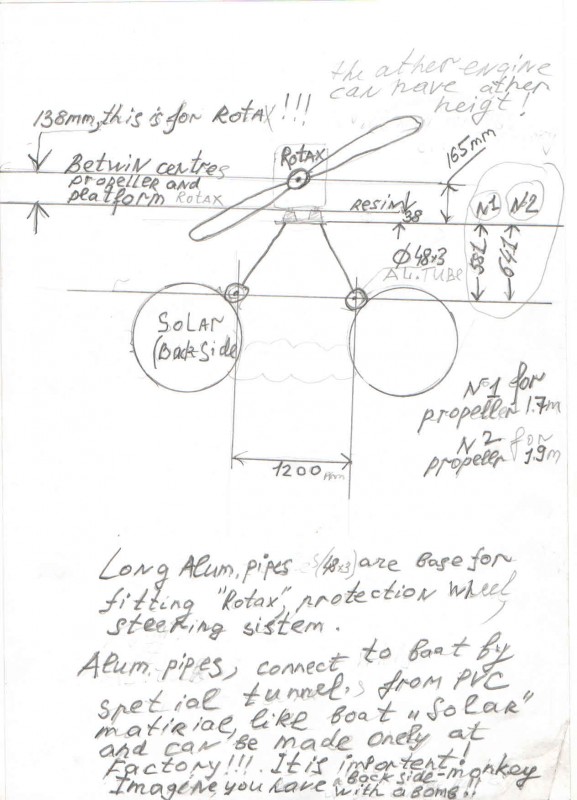 the ather engine
can have ather
heigt!
138mm, this is for RotAX!!!
165mm
Betwin centres
propeller and
platform ROTAX
RotAX
RESIN
38
N1
N2
581
641
φ48x3
AL. TUBE
SOLAR
(Back Side
N1 for
propeller 1.7m
N2 for
propeller 1.9m
1200 mm
Long Alum, pipes (48x3) are base for
fitting "Rotax", protection wheel,
steering sistem.
Alum. pipes, connect to boat by
spetial tunnels from PVC
matirial, like boat „Solar"
and can be made onely at
Factory!!!. It is important!
Imagine you have a back side-monkey
with a bomb!!